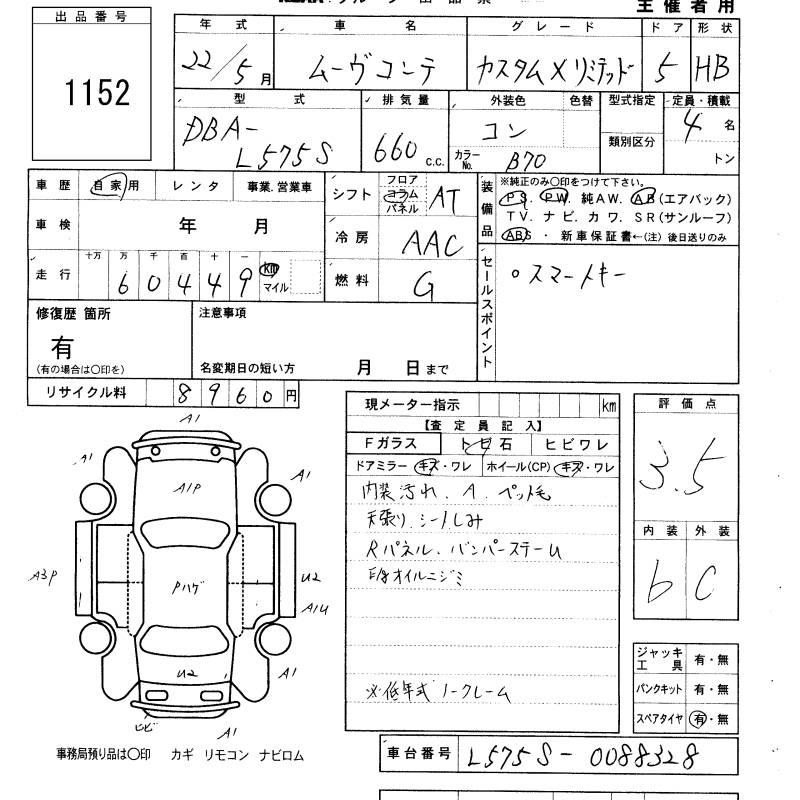 出品番号
1152
主催者用
年式 車名 グレード ドア 形状
22/5月 ムーヴコンテ カスタムXリミテッド 5 HB
型式 排気量 外装色 色替 型式指定 定員・積載
DBA-L575S 660 c.c. コン カラーNo. B70 類別区分 4名 トン
車歴 自家用 レンタ 事業.営業車
車検 年 月
走行 十万 万 千 百 十 一
60449 km マイル
シフト フロア コラム パネル AT
冷房 AAC
燃料 G
装備品 ※純正のみ○印をつけて下さい。
PS. PW. 純AW. AB(エアバック)
TV. ナビ. カワ. SR(サンルーフ)
ABS・新車保証書←(注)後日送りのみ
セールスポイント
○スマートキー
修復歴 箇所
有
(有の場合は○印を)
注意事項
名変期日の短い方 月 日まで
リサイクル料 8960円
現メーター指示 km
【査定員記入】
Fガラス トビ石 ヒビワレ
ドアミラー キズ・ワレ ホイール(CP) キズ・ワレ
内装汚れ. A. ペット毛
天張り. シートしみ
Rパネル. バンパーステー U
E/gオイルニジミ
※低年式 ノークレーム
評価点
3.5
内装 外装
b C
A1
A1
A1
A1P
A3P
Pハゲ
U2
A1U
U2
A1
ビビ
A1
ジャッキ工具 有・無
パンクキット 有・無
スペアタイヤ 有・無
事務局預り品は○印 カギ リモコン ナビロム
車台番号 L575S-0088328